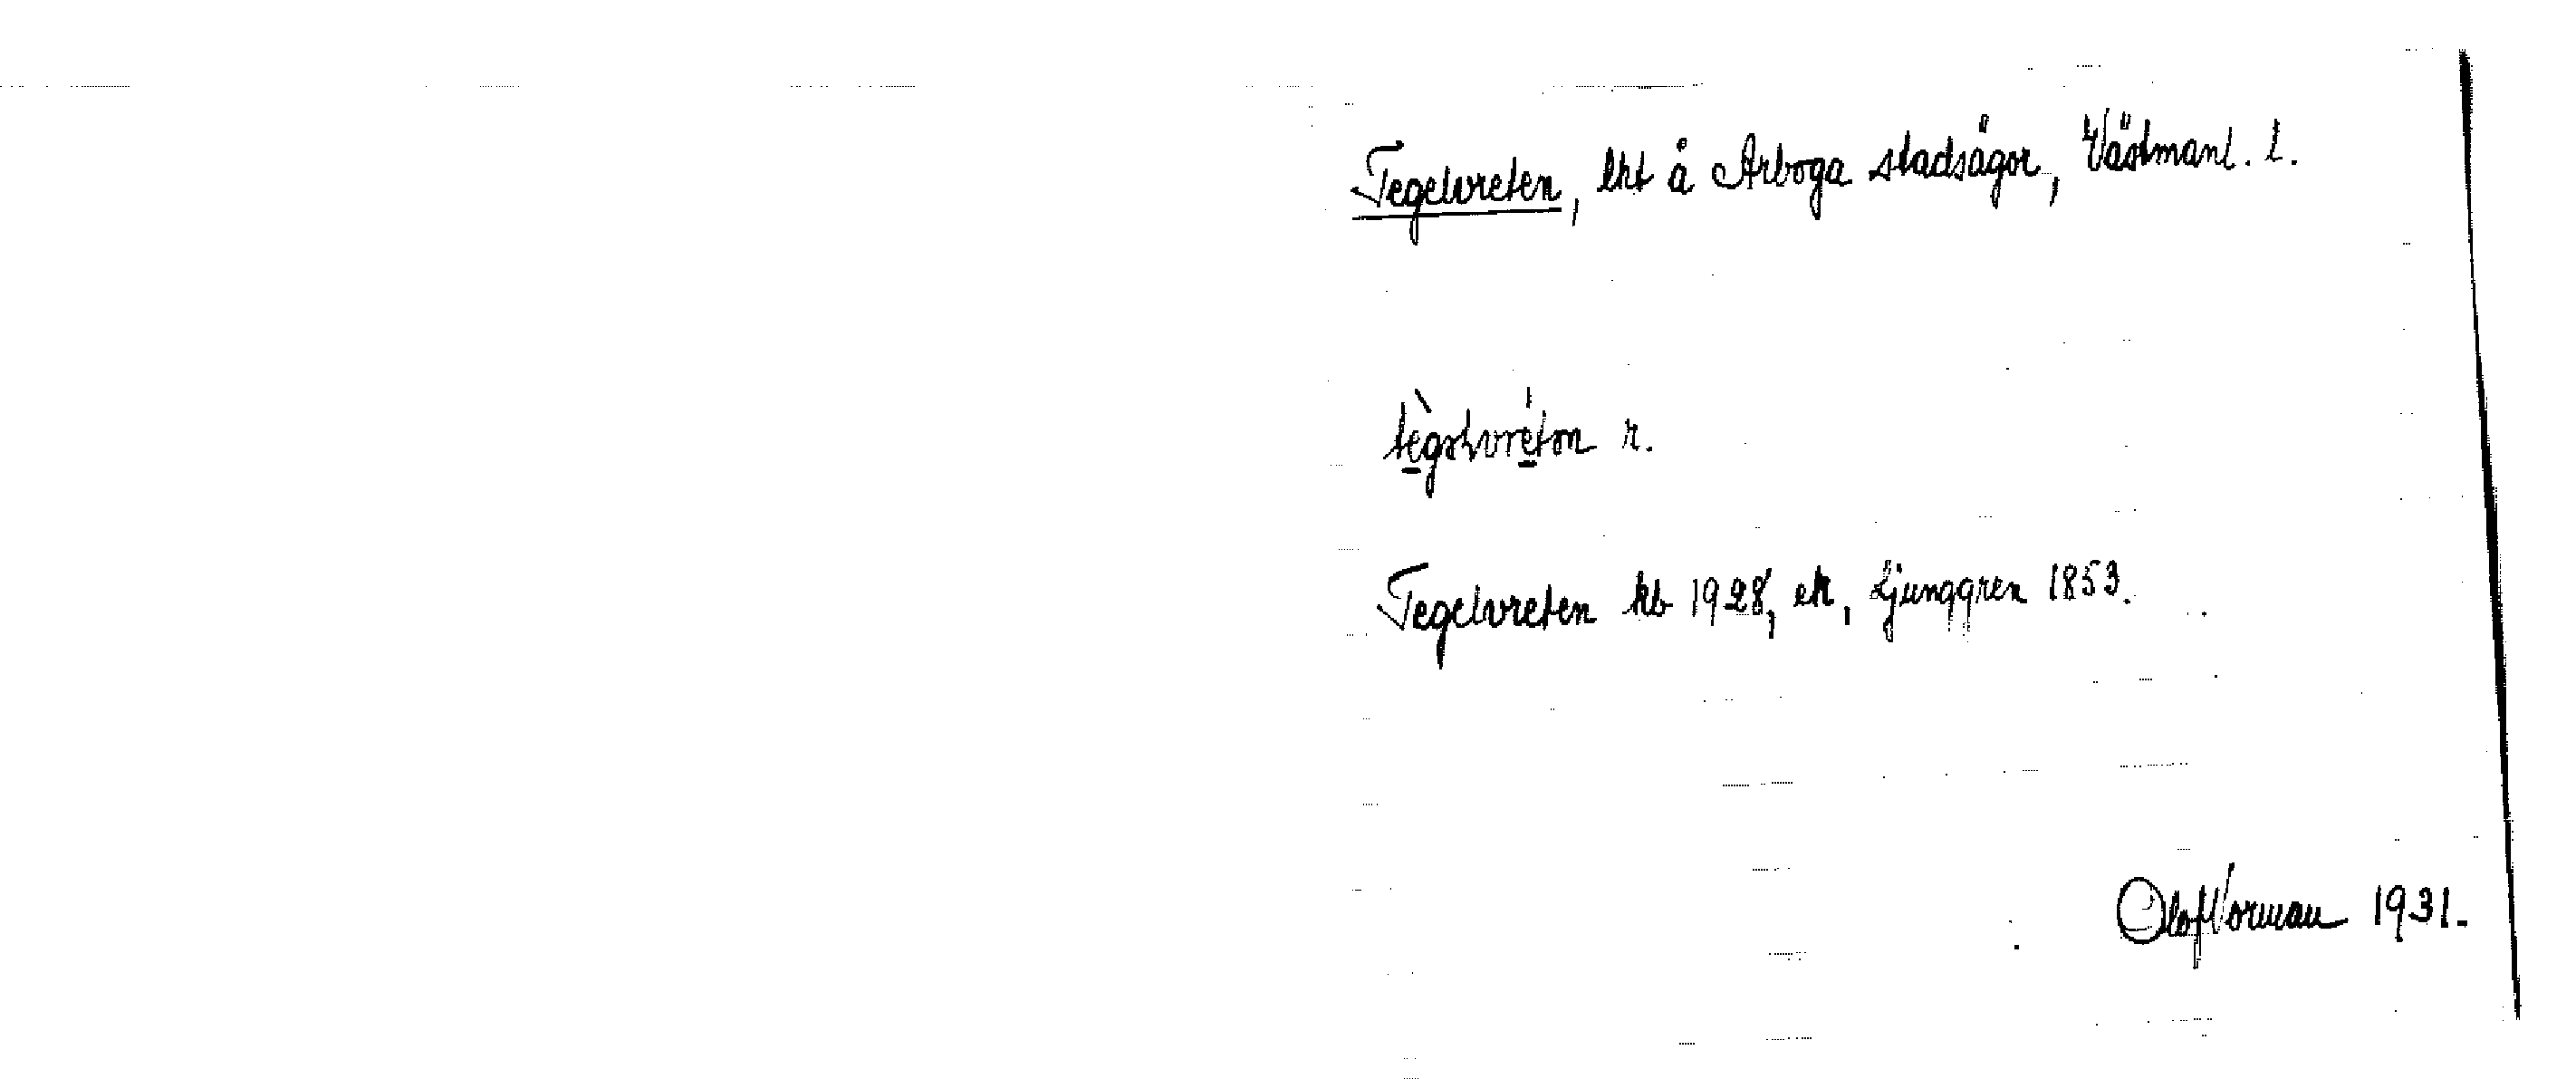 Tegelvreten, lht å Arboga stadsägor, Västmanl. l.
tèg̱əlvre̱tən r.
Tegelvreten kb 1928, ek, Ljunggren 1853.
Olof Norman 1931.